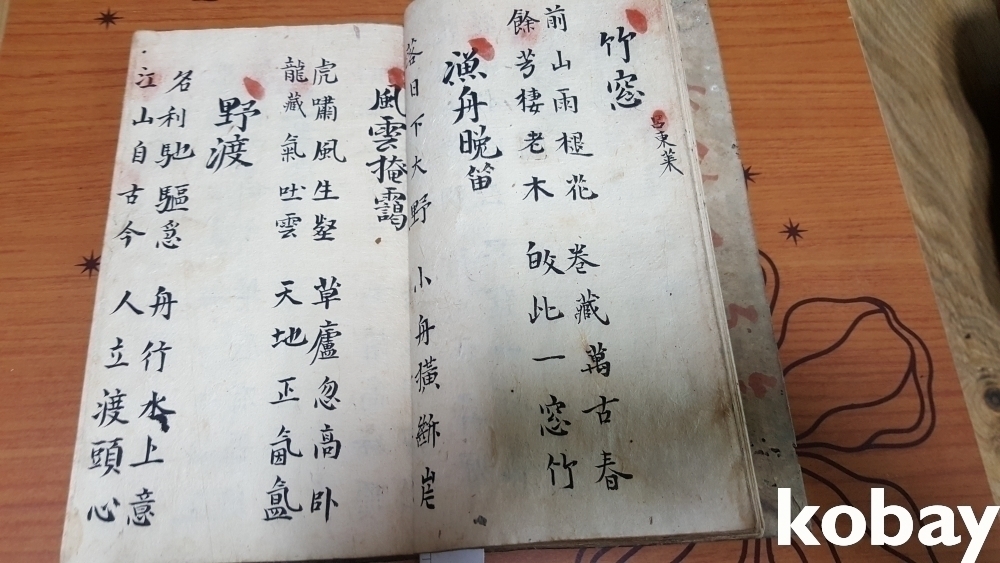 竹窓
呂東萊
前山雨褪花 卷藏萬古春
餘芳棲老木 皎此一窓竹
漁舟晚笛
落日下大野 小舟橫斷岸
風雲掩靄
虎嘯風生壑 草廬忽高卧
龍藏氣吐雲 天地正氤氳
野渡
名利馳驅急 舟行水上意
江山自古今 人立渡頭心
kobay